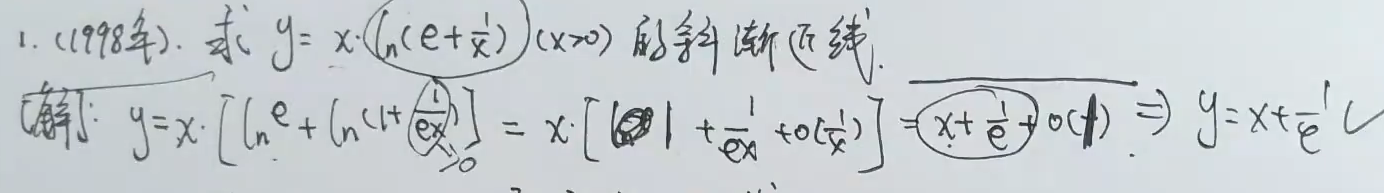 1. (1998年). 求 y = x·ln(e+1/x) (x>0) 的斜渐近线.
[解]: y=x·[ln e + ln(1+1/ex)] = x·[1 + 1/ex + o(1/x)] = x+1/e+o(1) ⇒ y=x+1/e ✓
→0